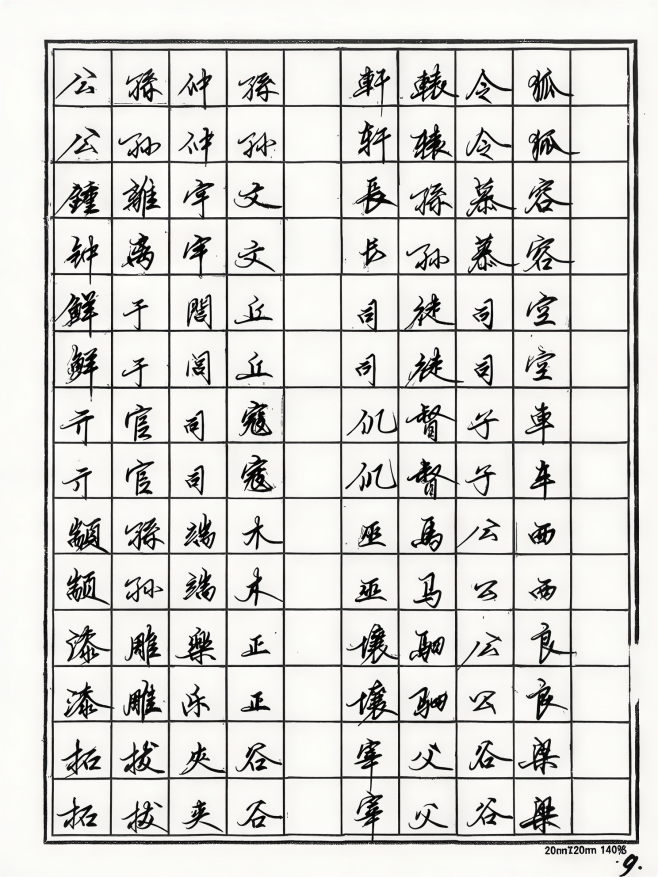 公孫仲孫 軒轅令狐
公孙仲孙 轩辕令狐
鍾離宇文 長孫慕容
钟离宇文 长孙慕容
鮮于閭丘 司徒司空
鲜于闾丘 司徒司空
亓官司寇 仉督子車
亓官司寇 仉督子车
顓孫端木 巫馬公西
颛孙端木 巫马公西
漆雕樂正 壤駟公良
漆雕乐正 壤驷公良
拓拔夾谷 宰父谷梁
拓拔夹谷 宰父谷梁
20mm×20mm 140%
9.